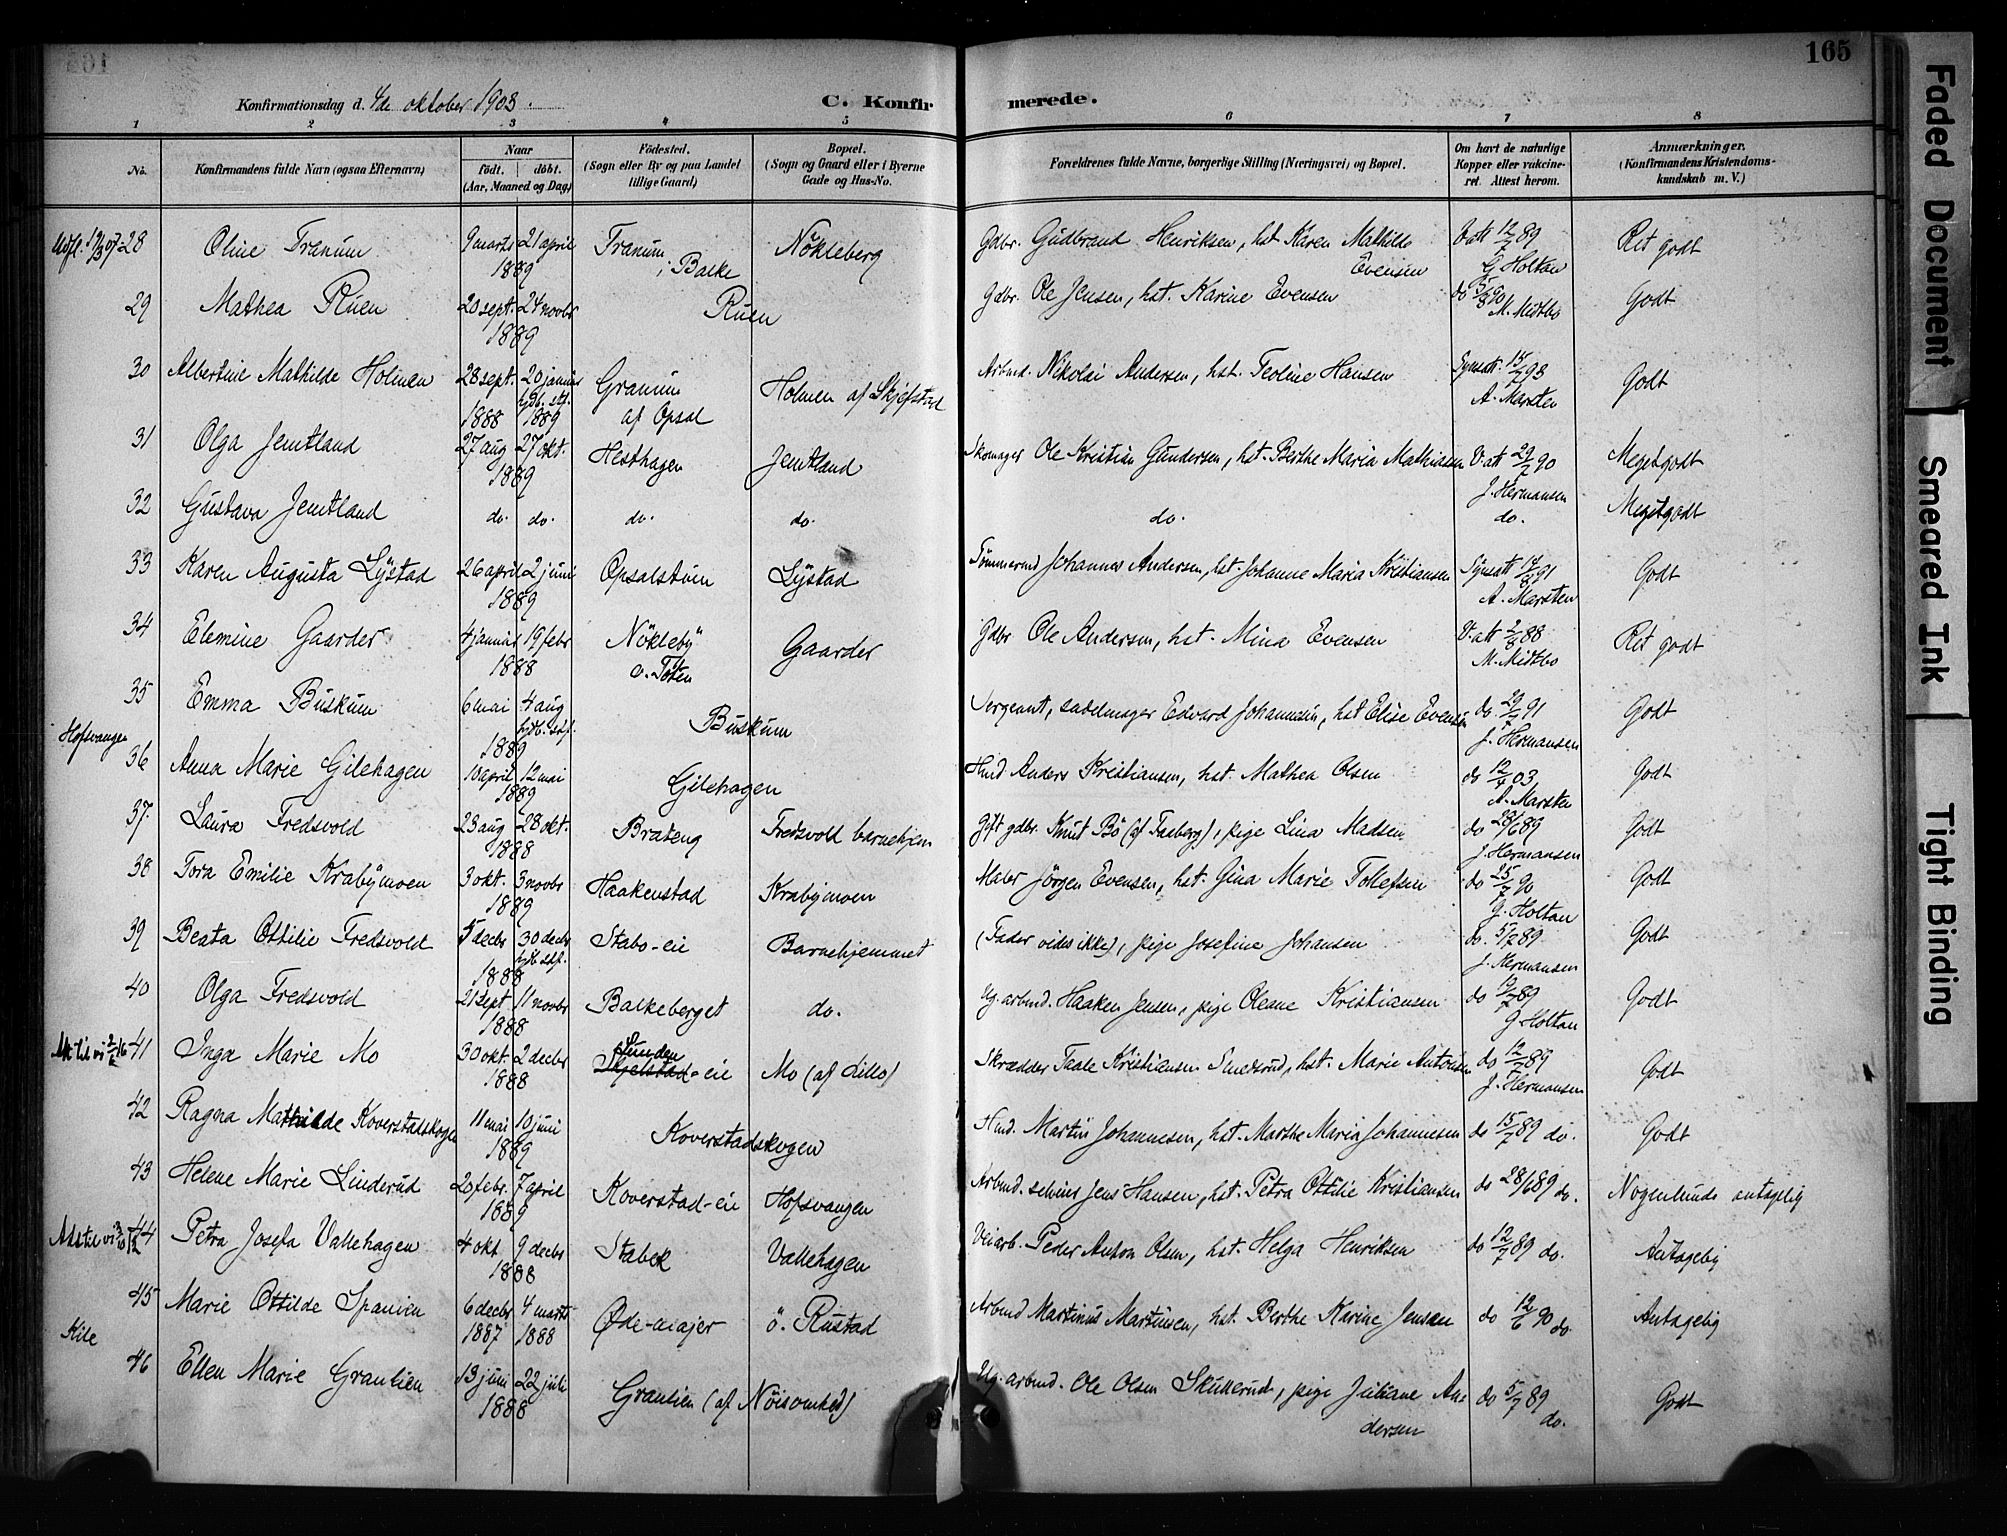 165
Konfirmationsdag d. 4de oktober 1903.
C. Konfirmerede.
1 2 3 4 5 6 7 8
No.
Konfirmandens fulde Navn (ogsaa Efternavn)
Naar
födt. döbt.
(Aar, Maaned og Dag)
Födested.
(Sogn eller By og paa Landet
lillige Gaard)
Bopæl.
(Sogn og Gaard eller i Byerne
Gade og Hus-No.
Forældrenes fulde Navne, borgerlige Stilling (Næringsvei) og Bopæl.
Om havt de naturlige
Kopper eller vakcine-
ret. Attest herom.
Anmærkninger.
(Konfirmandens Kristendoms-
kundskab m. V.)
28 Oline Tranum 9 marts 21 april 1889 Tranum i Balke Nökleberg Gdbr. Gudbrand Henriksen, hst. Karen Mathilde Evensen V. att 12/7 89 G Holtan Ret godt
29 Mathea Ruen 20 sept. 24 novbr 1889 Ruen Gdbr. Ole Jensen, hst. Karine Evensen do 90 M. Midtbo Godt
30 Albertine Mathilde Holmen 28 sept. 1888 20 januar hjdb. stf. 1889 Granum af Opsal Holmen af Skjefstad Arbmd. Nikolai Andersen, hst. Teoline Hansen Synsatt 93 A. Marsten Godt
31 Olga Jemtland 27 aug 27 okt. 1889 Hesthagen Jemtland Skomager Ole Kristian Gundersen, hst. Berthe Maria Mathiasen V. att 29/7 90 J. Hermansen Megetgodt
32 Gustava Jemtland do. do. do. do. do. do. Megetgodt
33 Karen Augusta Lystad 26 april 2 juni 1889 Opsalstuen Lystad Tömmermd Johannes Andersen, hst. Johanne Maria Kristiansen Synsatt 91 A. Marsten Godt
34 Elemine Gaarder 4 januar 19 febr 1888 Nökleby ö. Toten Gaarder Gdbr Ole Andersen, hst. Mina Evensen V. att 88 M. Midtbo Ret godt
35 Emma Buskum 6 mai 4 aug hjdb. stf. 1889 Buskum Sergeant, sadelmager Edvard Johannesen, hst Elise Evensen do. 29/7 91 J. Hermansen Godt
Hofsvangen
36 Anna Marie Gilehagen 10 april 12 mai 1889 Gilehagen Hmd Anders Kristiansen, hst. Mathea Olsen do 03 A. Marsten Godt
37. Laura Fredsvold 23 aug 28 okt. 1888 Brateng Fredsvold barnehjem Gift gdbr. Knut Bö (af Faaberg), pige Lina Madsen do 28/6 89 J. Hermansen Godt
38 Tora Emilie Krabymoen 3 okt. 3 novbr 1889 Haakenstad Krabymoen Maler Jörgen Evensen, hst. Gina Marie Tollefsen do 25/7 90 G. Holtan Godt
39 Beata Ottilie Fredsvold 5 decbr 30 decbr hjdb. stf. 1888 Stabo-eie Barnehjemmet (Fader vides ikke), pige Josefine Johansen do. 5/7 89 J. Hermansen Godt
40 Olga Fredsvold 21 sept 11 novbr 1888 Balkeberget do. Ug. arbmd. Haaken Jensen, pige Oleane Kristiansen do 12/7 89 G Holtan Godt
41 Inga Marie Mo 30 okt. 2 decbr 1888 Sunden Skjelstad-eie Mo (af Lillo) Skrædder Taale Kristiansen Smedsrud, hst. Marie Antonsen do 12/7 89 J. Hermansen Godt
42 Ragna Mathilde Koverstadskogen 11 mai 10 juni 1889 Koverstadskogen Hmd. Martin Johannesen, hst. Marthe Maria Johannesen do 15/7 89 do. Godt
43 Helene Marie Linderud 20 febr. 7 april 1889 Koverstad-eie Hofsvangen Arbmd. Jens Hansen, hst. Petra Ottilie Kristiansen do 28/6 89 do. Nogenlunde antagelig
44 Petra Josefa Vallehagen 4 okt 9 decbr 1888 Stabek Vallehagen Veiarb. Peder Anton Olsen, hst. Helga Henriksen do 12/7 89 do. Antagelig
45 Marie Ottilde Spanien 6 decbr 1887 4 marts 1888 Øde-majer ö. Rustad Arbmd Martinus Martinsen, hst. Berthe Karine Jensen do 12/6 90 do. Antagelig
Kile
46 Ellen Marie Granlien 13 juni 22 juli 1888 Granlien (af Nöisomhed) Ug. arbmd. Ole Olsen Skullerud, pige Juliane Andersen do 5/7 89 do. Godt
Faded Document
Smeared Ink
Tight Binding